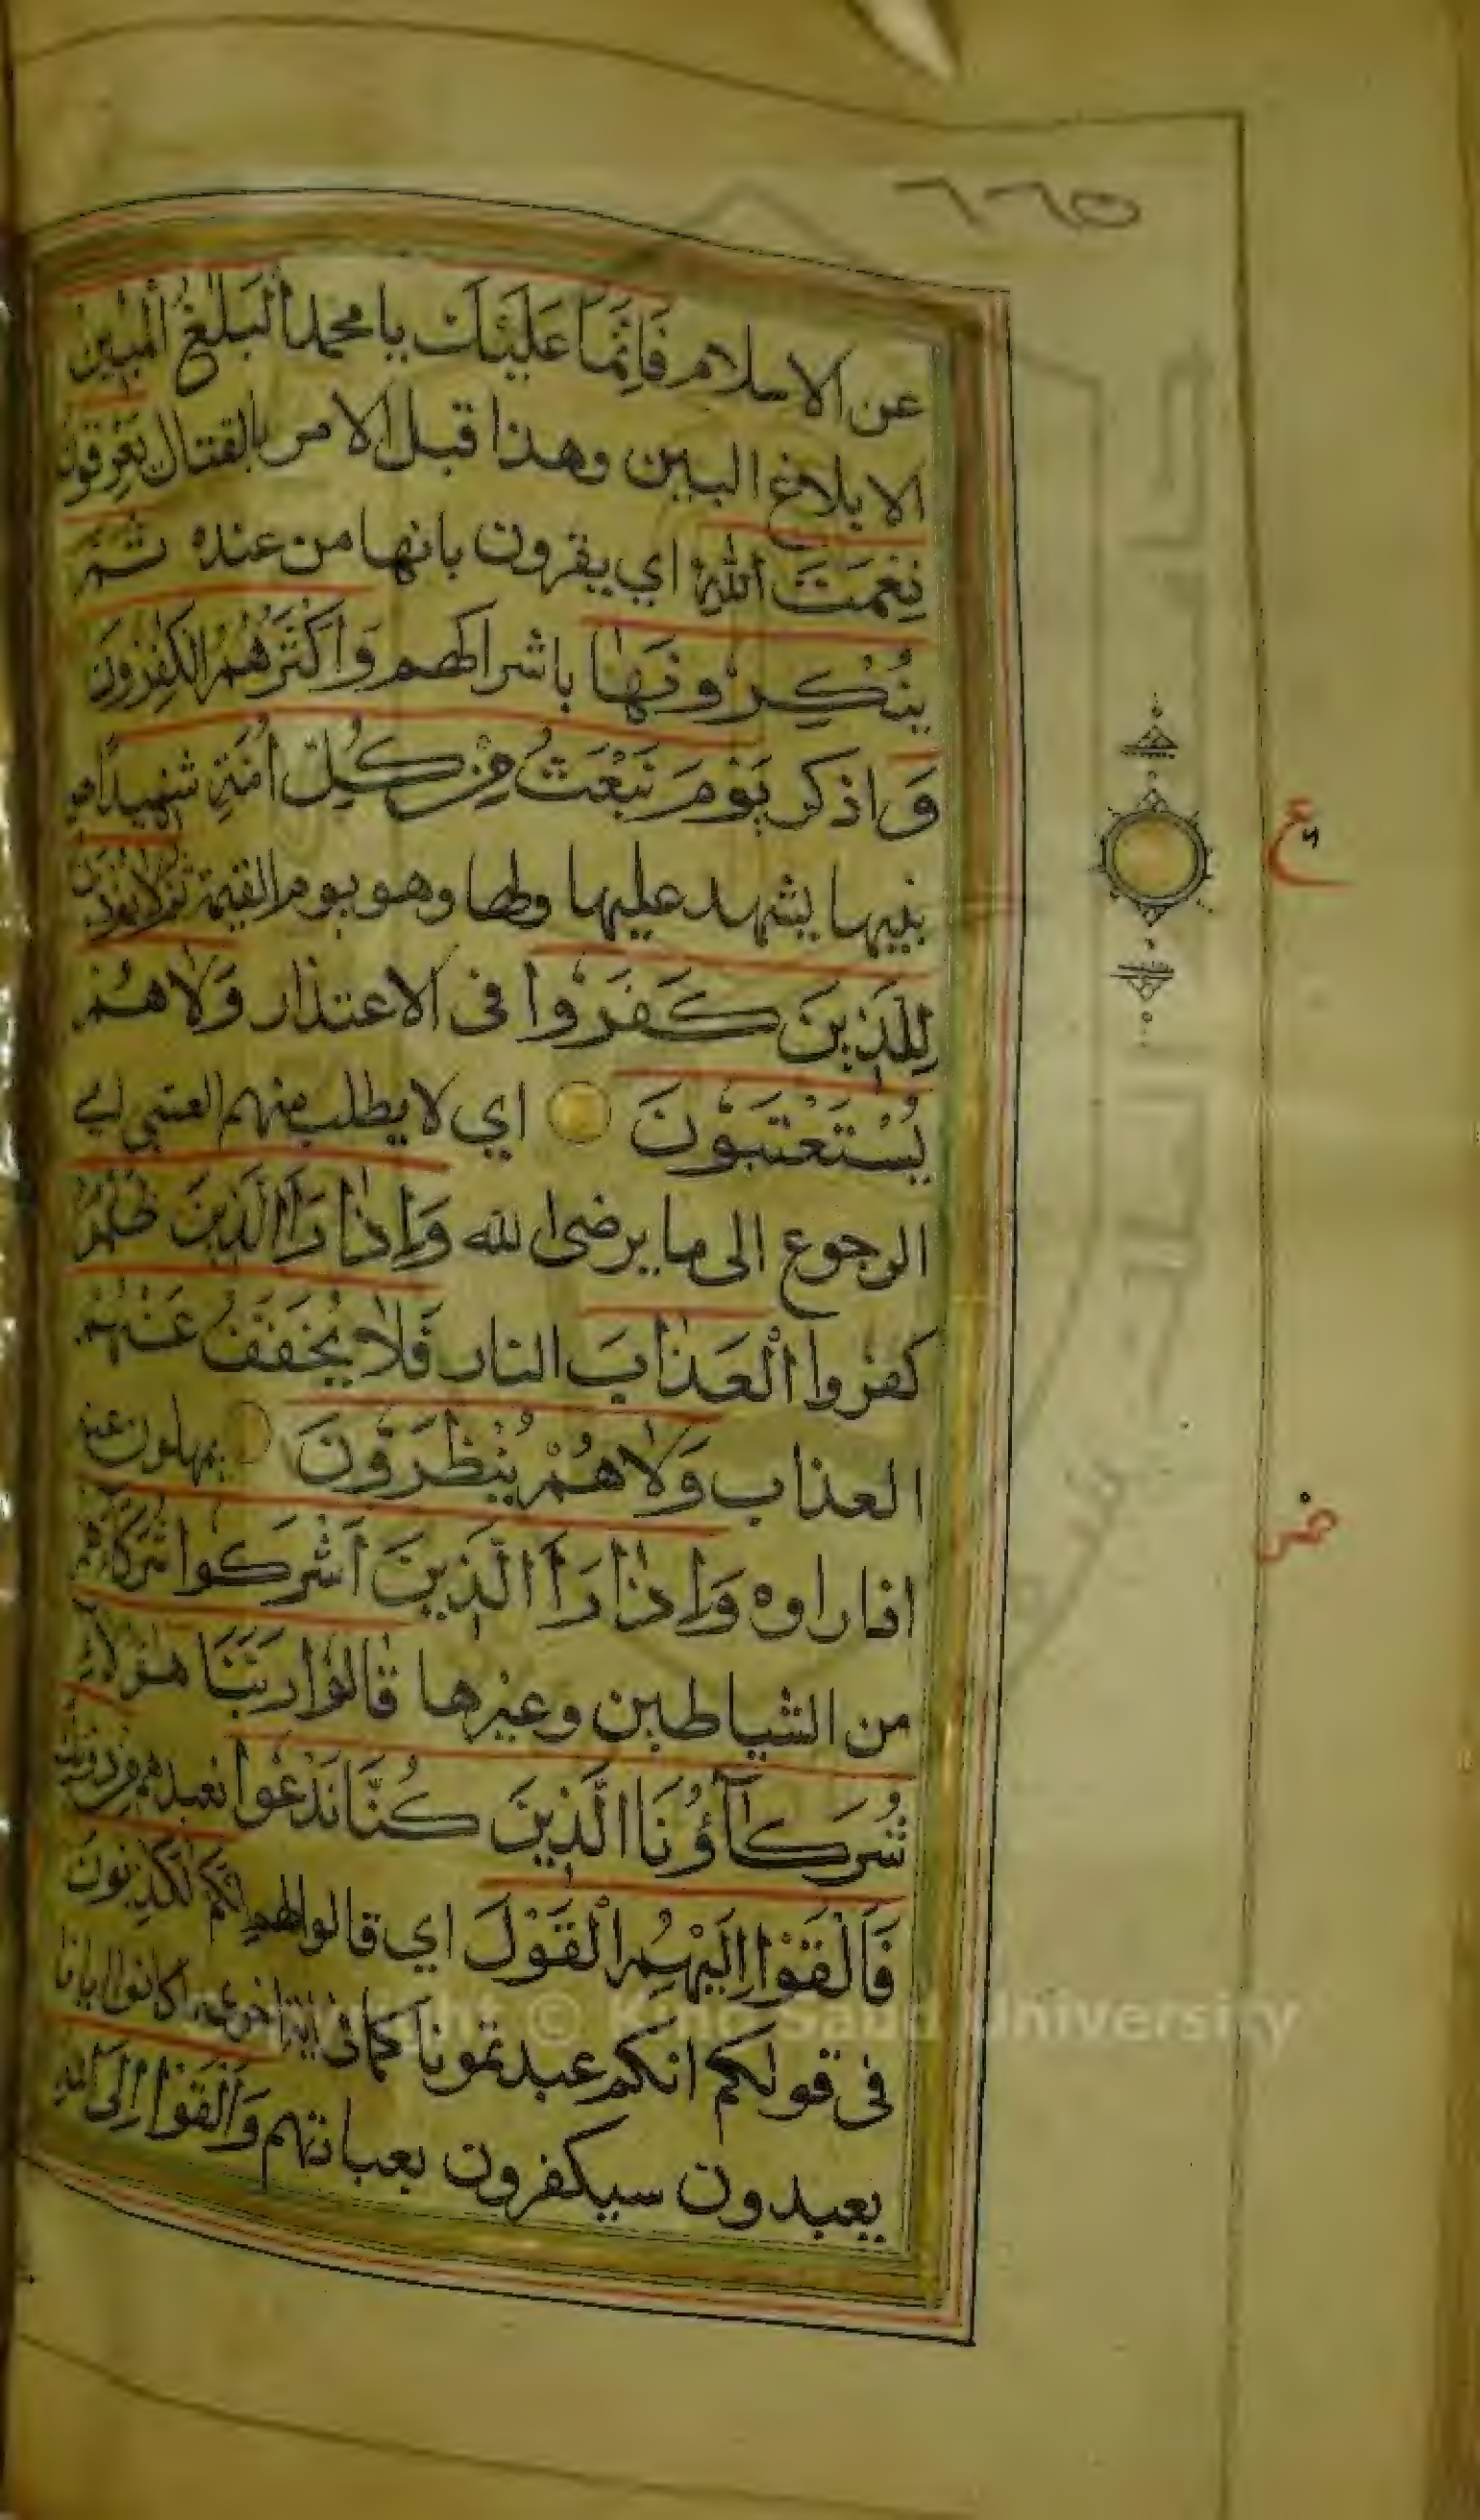 ٦٦٥
عن الاسلام فَاِنَّمَا عَلَيْكَ يا محمد الْبَلٰغُ الْمُبِيْنُ
الابلاغ البين وهذا قبل الامر بالقتال يَعْرِفُوْنَ
نِعْمَتَ اللّٰهِ اي يقرون بانها من عنده ثُمَّ
يُنْكِرُوْنَهَا باشراكهم وَاَكْثَرُهُمُ الْكٰفِرُوْنَ
وَ اذكر يَوْمَ نَبْعَثُ مِنْ كُلِّ اُمَّةٍ شَهِيدًا هو
نبيها يشهد عليها ولها وهو يوم القيمة ثُمَّ لَا يُؤْذَنُ
لِلَّذِيْنَ كَفَرُوْا فى الاعتذار وَلَا هُمْ
يُسْتَعْتَبُوْنَ اي لا يطلب منهم العتبى اي
الرجوع الى ما يرضى الله وَاِذَا رَاَ الَّذِيْنَ ظَلَمُوْا
كفروا الْعَذَابَ النار فَلَا يُخَفَّفُ عَنْهُمْ
العذاب وَلَا هُمْ يُنْظَرُوْنَ يمهلون عنه
اذا راوه وَاِذَا رَاَ الَّذِيْنَ اَشْرَكُوا شُرَكَاءَهُمْ
من الشياطين وغيرها قَالُوْا رَبَّنَا هٰؤُلَاءِ
شُرَكَآؤُنَا الَّذِيْنَ كُنَّا نَدْعُوْا نعبدهم مِنْ دُوْنِكَ
فَاَلْقَوْا اِلَيْهِمُ الْقَوْلَ اي قالوا لهم اِنَّكُمْ لَكٰذِبُوْنَ
فى قولكم انكم عبدتمونا كما فى اية اخرى ما كانوا ايانا
يعبدون سيكفرون بعبادتهم وَاَلْقَوْا اِلَى اللّٰهِ
ع
Copyright © King Saud University